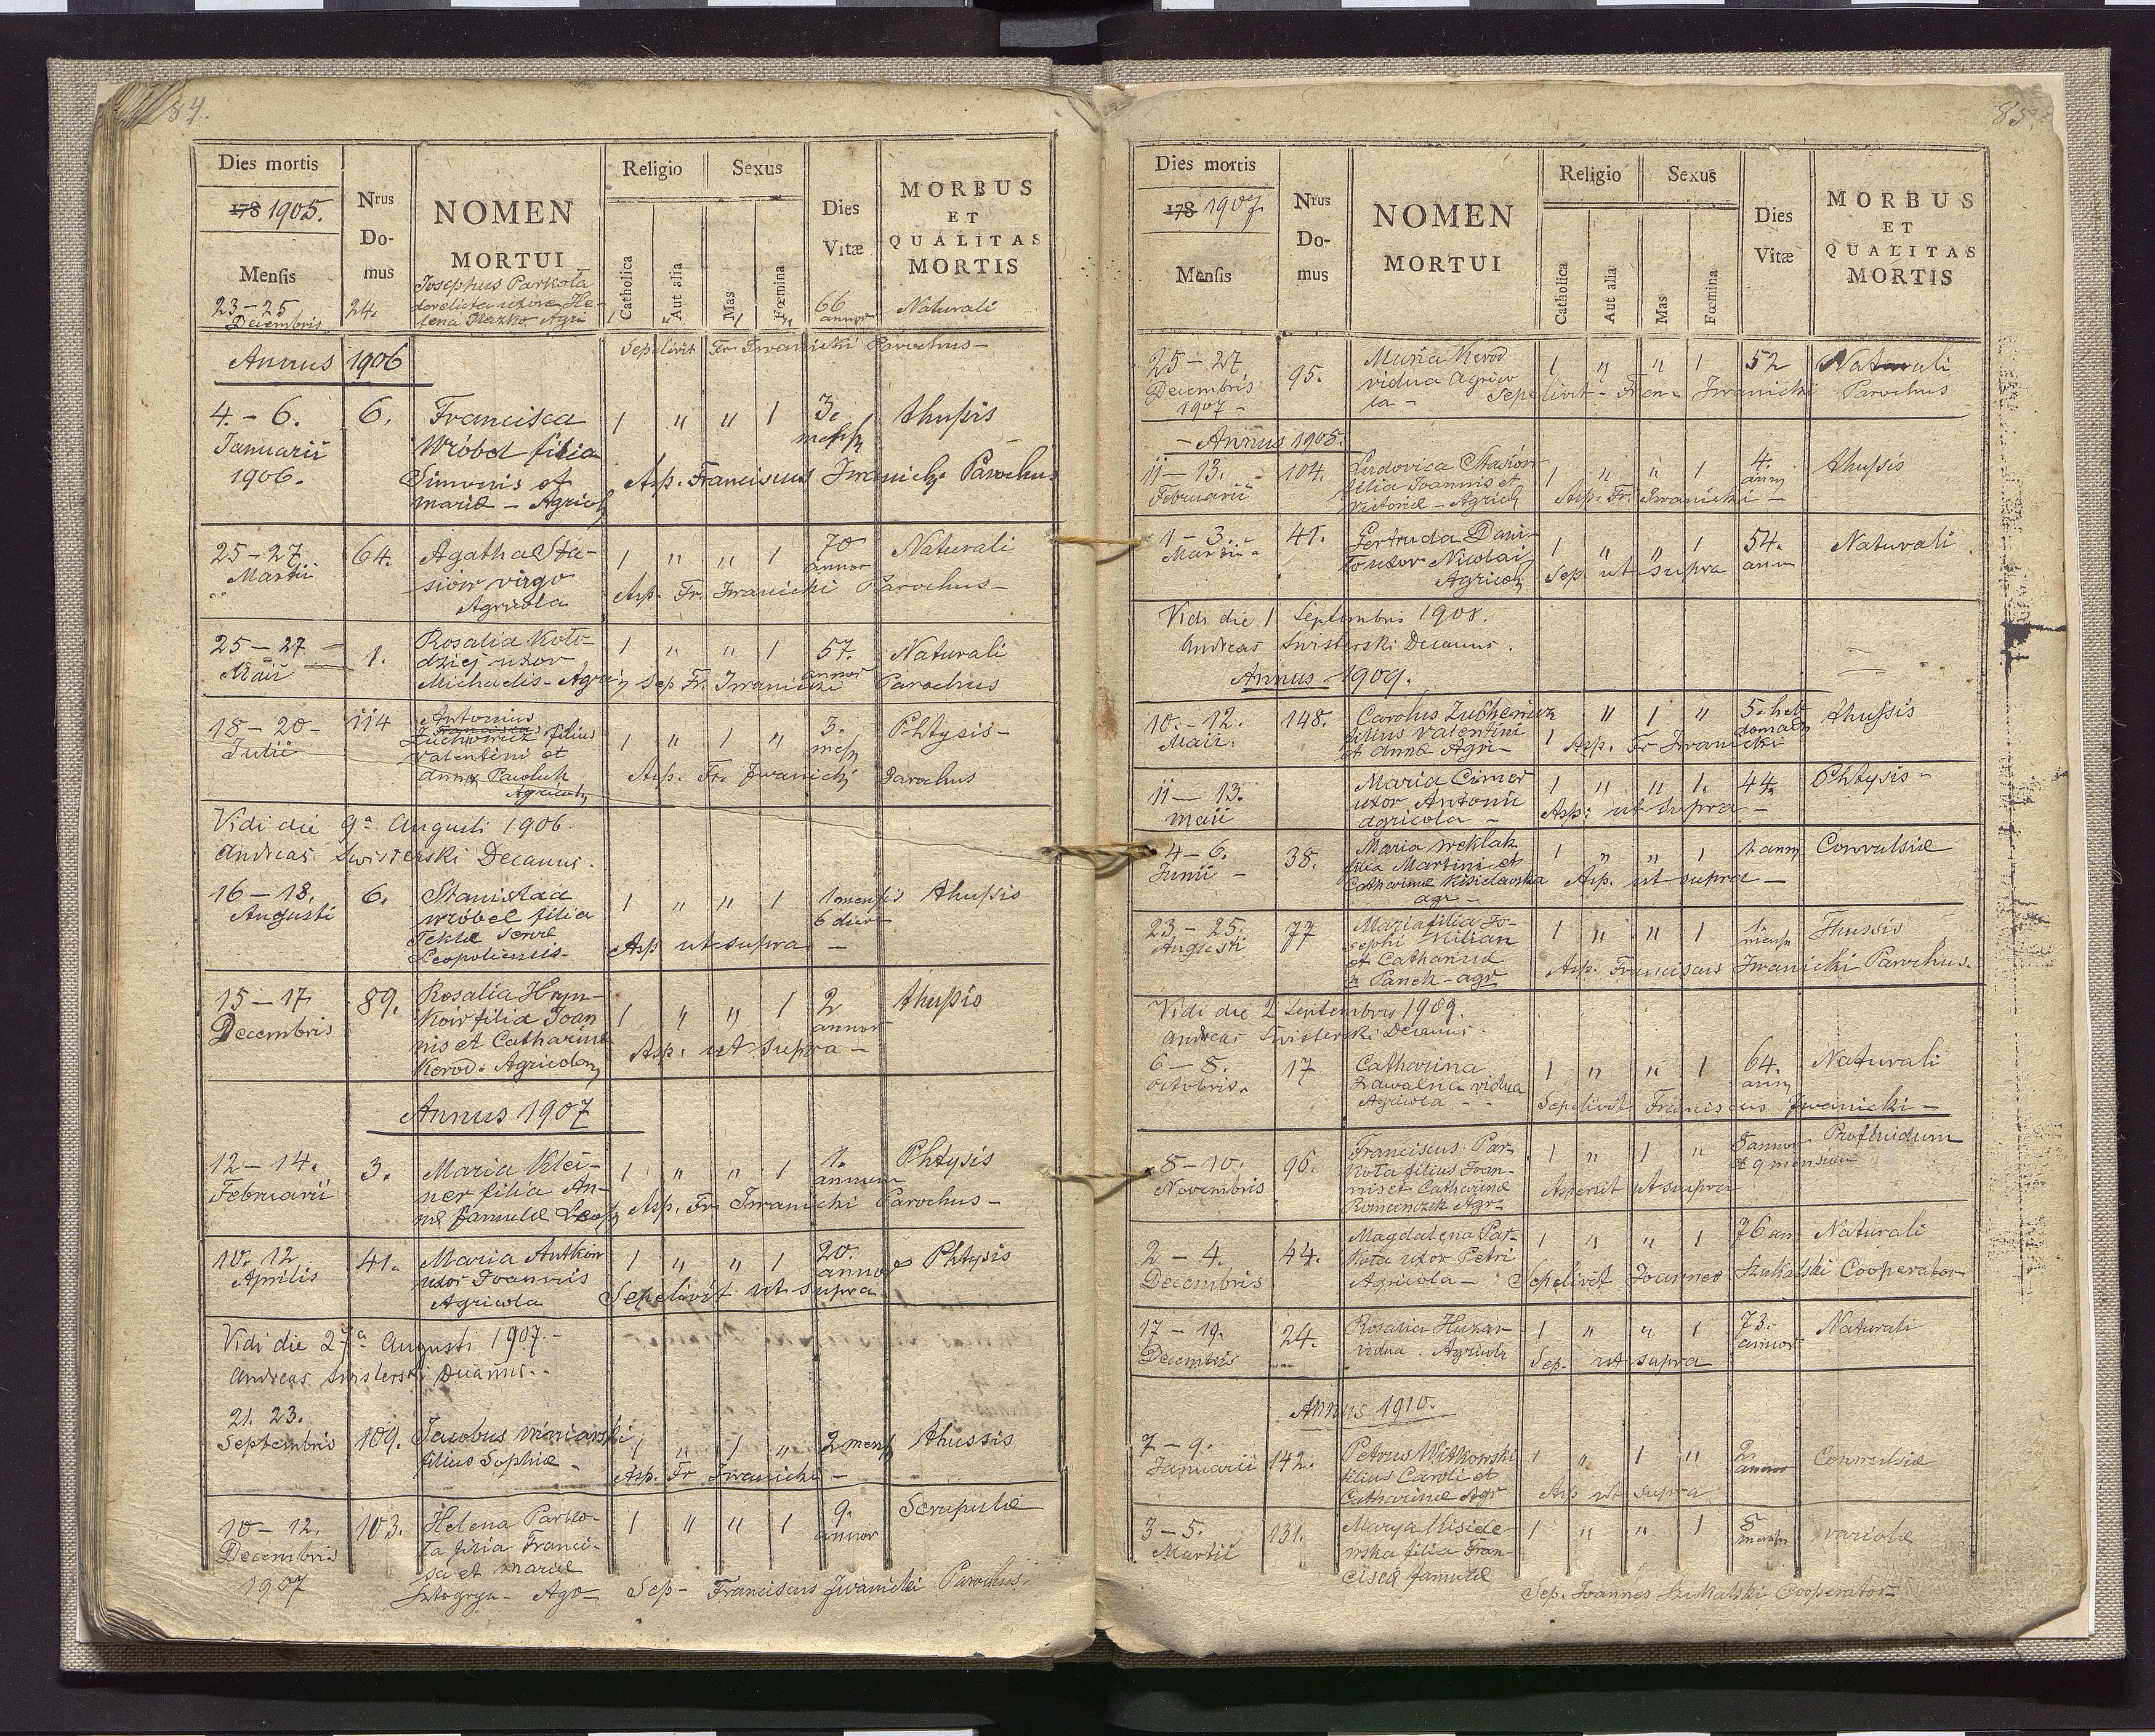 84.
Dies mortis
178 1905.
Mensis
Nrus
Do-
mus
NOMEN
MORTUI
Religio
Sexus
Catholica
Aut alia
Mas
Fœmina
Dies
Vitæ
MORBUS
ET
QUALITAS
MORTIS
23-25
Decembris
24.
Josephus Parkoła
derelicta uxore He-
lena Mazko Agri
1 " 1 "
66
annor
Naturali
Sepelivit Fr. Iwanicki Parochus-
Annus 1906
4.-6.
Januarii
1906.
6.
Francisca
Wróbel filia
Simonis et
Mariæ - Agricol
1 " " 1
3.
mens
thussis
Asp. Franciscus Iwanicki Parochus
25-27
Martii
64.
Agatha Sta-
siów virgo
Agricola
1 " " 1
70
annor
Naturali
Asp. Fr. Iwanicki Parochus-
25-27
Maii
1.
Rosalia Koło-
dziej uxor
Michaelis-Agric
1 " " 1
57.
annor
Naturali
Sep Fr. Iwanicki Parochus
18-20-
Julii
114
Antonius
Zuchowicz filius
Valentini et
Annæ Pawluk
Agricol
1 " 1 "
3.
mens
Phtysis-
Asp. Fr. Iwanicki Parochus
Vidi die 9ª Augusti 1906.
Andreas Swisterski Decanus.
16-18.
Augusti
6.
Stanislaa
Wróbel filia
Teklæ servæ
Leopoliensis-
1 " " 1
1 mensis
6 dier
thussis
Asp ut supra -
15-17
Decembris
89.
Rosalia Hryn-
ków filia Joan
nis et Catharinæ
Kerod. Agricolar
1 " " 1
2
annor
thussis
Asp. ut supra -
Annus 1907
12-14.
Februarii
3.
Maria Klei-
ner filia An-
næ famulæ Leop
1 " " 1
1.
annum
Phtysis
Asp. Fr. Iwanicki Parochus-
10. 12
Aprilis
41.
Maria Antków
uxor Joannis
Agricola
1 " " 1
20.
annor
Phtysis
Sepelivit ut supra
Vidi die 27ª Augusti 1907.-
Andreas Swisterski Decanus.-
21. 23.
Septembris
109.
Jacobus Winiarski
filius Sophiæ -
1 " 1 "
2 mens
thussis
Asp. Fr Iwanicki -
10-12.
Decembris
1907
103.
Helena Parko-
ła filia Franci-
sci et Mariæ
Agr-
1 " " 1
9.
annor
Scrupulæ
Sep- Franciscus Iwanicki Parochus.
85.
Dies mortis
178 1907
Mensis
Nrus
Do-
mus
NOMEN
MORTUI
Religio
Sexus
Catholica
Aut alia
Mas
Fœmina
Dies
Vitæ
MORBUS
ET
QUALITAS
MORTIS
25-27
Decembris
1907-
95.
Maria Kerod
vidua Agrico
la -
1 " " 1
52
Naturali
Sepelivit - Fran- Iwanicki Parochus
- Annus 1908.
11-13.
Februarii
104.
Ludovica Stasiów
filia Joannis et
Victoriæ - Agricol
1 " " 1
4.
ann
thussis
Asp. Fr. Iwanicki -
1-3.-
Martii-
41.
Gertruda Dawi-
uxor Nicolai
Agricol
1 " " 1
54.
ann
Naturali
Sep. ut supra
Vidi die 1 Septembris 1908.
Andreas Swisterski Decanus.
Annus 1909.
10.-12.
Maii.
148.
Carolus Zuchewicz
filius Valentini
et Annæ Agri-
1 " 1 "
5. heb
domad
thussis
Asp. Fr Iwanicki
11-13.
Maii
Maria Cimer
uxor Antonii
agricola -
1 " " 1.
44.
Phtysis-
Asp: ut supra -
4-6.
Junii-
38.
Maria Weklak
filia Martini et
Catharinæ Kisielewska
agr-
1 " " 1
1. ann
Convulsiæ
Asp. ut supra -
23-25.
Augusti
77
Maria filia Jo-
sephi Kilian
et Catharinæ
n Panek-agr
1 " " 1
1.
mens
Thussis
Asp. Franciscus Iwanicki Parochus.
Vidi die 2 Septembris 1909.
Andreas Swisterski Decanus.
6-8.
Octobris.
17
Catharina
Zawalna vidua
Agricola -
1 " " 1
64.
ann
Naturali
Sepelivit Franciscus Iwanicki -
8-10.
Novembris
96.
Franciscus Par-
koła filius Joan-
nis et Catharinæ
Romanczek Agr-
1 " 1 "
8 annor
et 9 mensium
Profluidum
Aspersit ut supra
2-4.
Decembris
44.
Magdalena Par-
koła uxor Petri
Agricola -
1 " " 1
76 an
Naturali
Sepelivit Joannes Szukalski Cooperator
17-19.
Decembris
24.
Rosalia Huzar-
vidua. Agricola
1 " " 1
73.
annor
Naturali
Sep. ut supra
Annus 1910.
7-9.
Januarii
142.
Petrus Witkowski
filius Caroli et
Catharinæ Agr
1 " 1 "
2.
annor
Convulsiæ
Asp ut supra
3-5.
Martii
131.
Marya Kisiele-
wska filia Fran-
ciscæ famulæ
1 " " 1
8
mens
variolæ
Sep. Joannes Szukalski Cooperator-